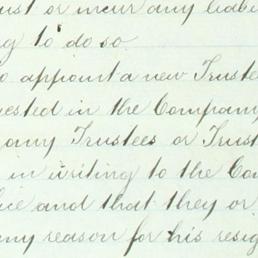 ust or incur any liabi
g to do so.
o appoint a new Truste
ested in the Company
any Trustees or Trust
in writing to the Co
ice and that they or
ny reason for his resig